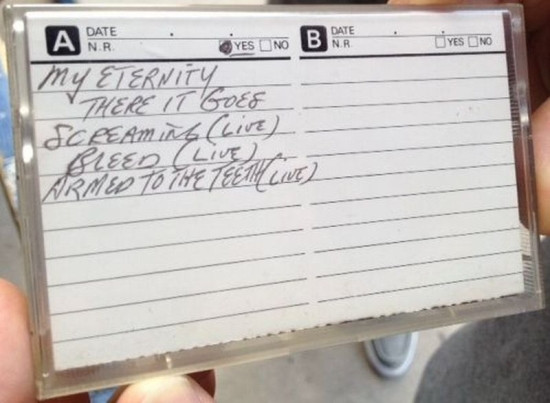 A DATE . .
N.R. YES NO
B DATE . .
N.R. YES NO
My ETERNITY
THERE IT GOES
SCREAMING (LIVE)
BLEED (LIVE)
ARMED TO THE TEETH (LIVE)